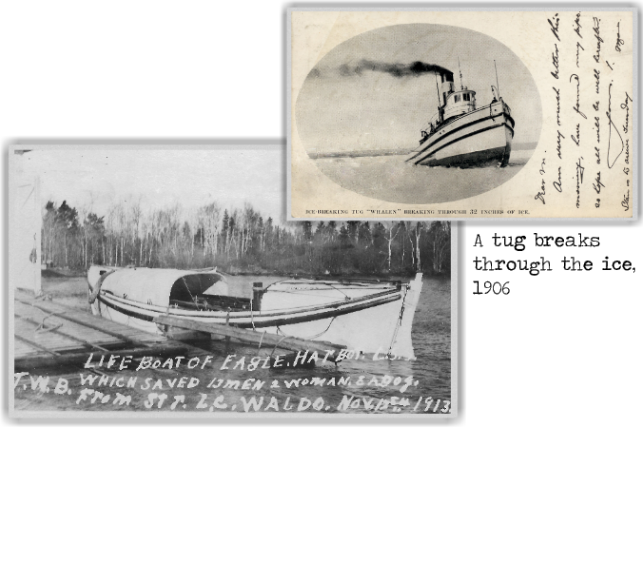 ICE-BREAKING TUG "WHALEN" BREAKING THROUGH 32 INCHES OF ICE.
Am very much better this
morning, have found my pipe
so hope all will be well
A tug breaks
through the ice,
1906
LIFE BOAT OF EAGLE. HARBOR.
T.W.B. WHICH SAVED MEN 2 WOMAN. & A DOG.
FROM L.C. WALDO. NOV. 1913.